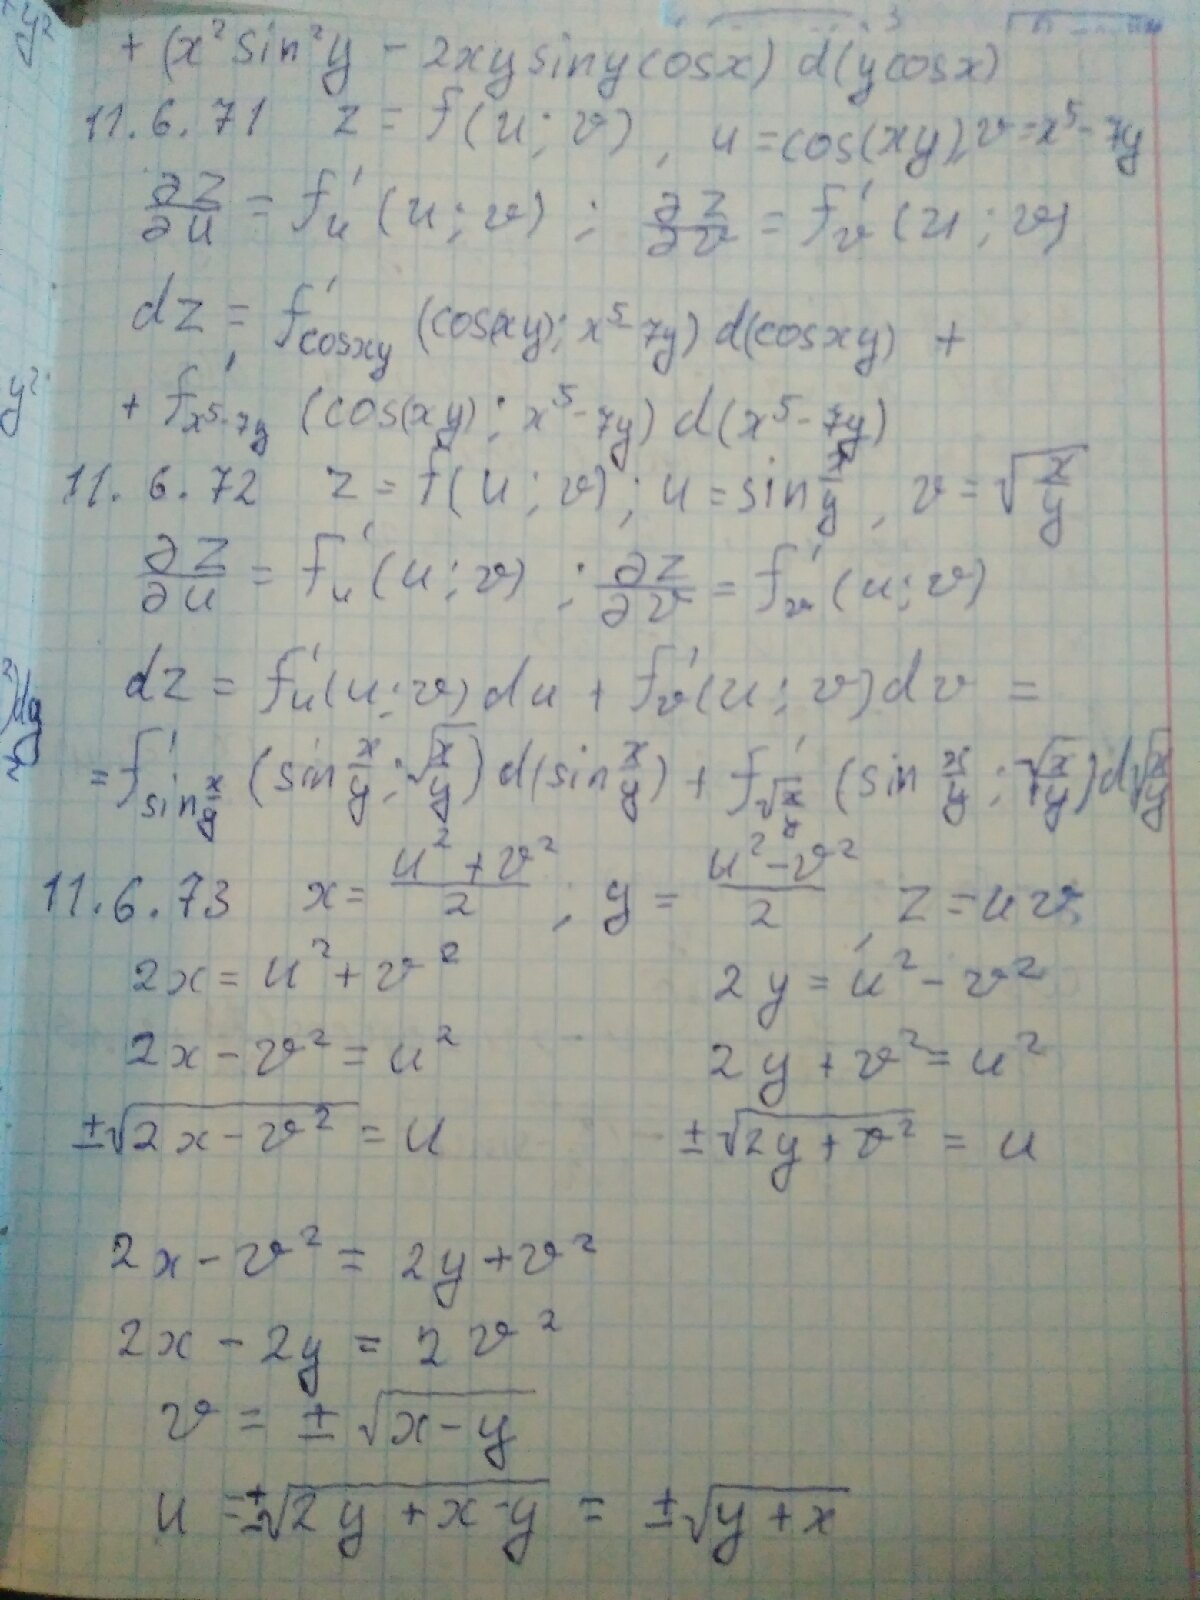 + (x² sin²y − 2xy siny cosx) d(y cosx)
11.6.71 z = f(u; v), u = cos(xy), v = x⁵ − 7y
∂z/∂u = f'ᵤ (u; v) ; ∂z/∂v = f'ᵥ (u; v)
dz = f'_{cosxy} (cos(xy); x⁵ − 7y) d(cosxy) +
+ f'_{x⁵−7y} (cos(xy); x⁵ − 7y) d(x⁵ − 7y)
11.6.72 z = f(u; v); u = sin x/y, v = √(x/y)
∂z/∂u = f'ᵤ (u; v) ; ∂z/∂v = f'ᵥ (u; v)
dz = f'ᵤ(u; v) du + f'ᵥ(u; v) dv =
= f'_{sin x/y} (sin x/y; √(x/y)) d(sin x/y) + f'_{√(x/y)} (sin x/y; √(x/y)) d√(x/y)
11.6.73 x = (u² + v²)/2; y = (u² − v²)/2, z = uv;
2x = u² + v² 2y = u² − v²
2x − v² = u² 2y + v² = u²
±√(2x − v²) = u ±√(2y + v²) = u
2x − v² = 2y + v²
2x − 2y = 2v²
v = ±√(x − y)
u = ±√(2y + x − y) = ±√(y + x)